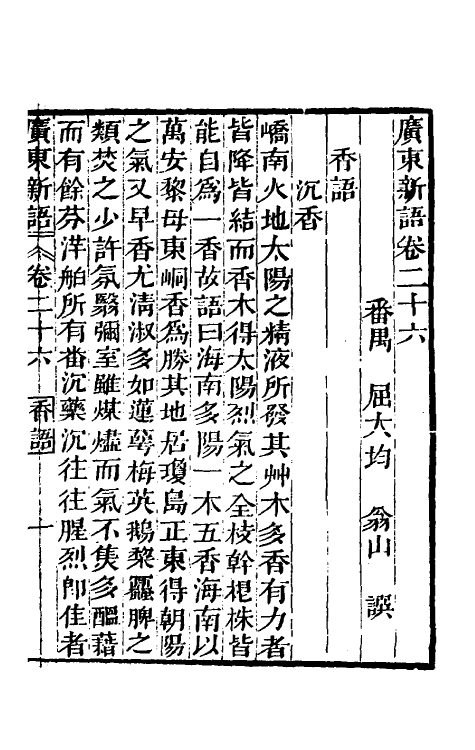 廣東新語卷二十六
番禺 屈大均 翁山 譔
香語
沉香
嶠南火地太陽之精液所發其艸木多香有力者
皆降皆結而香木得太陽烈氣之全枝幹根株皆
能自爲一香故語曰海南多陽一木五香海南以
萬安黎母東峒香爲勝其地居瓊島正東得朝陽
之氣又早香尤清淑多如蓮萼梅英鵝梨蜜脾之
類焚之少許氛翳彌室雖煤燼而氣不焦多醞藉
而有餘芬洋舶所有番沉藥沉往往腥烈卽佳者
廣東新語 卷二十六 香語 一